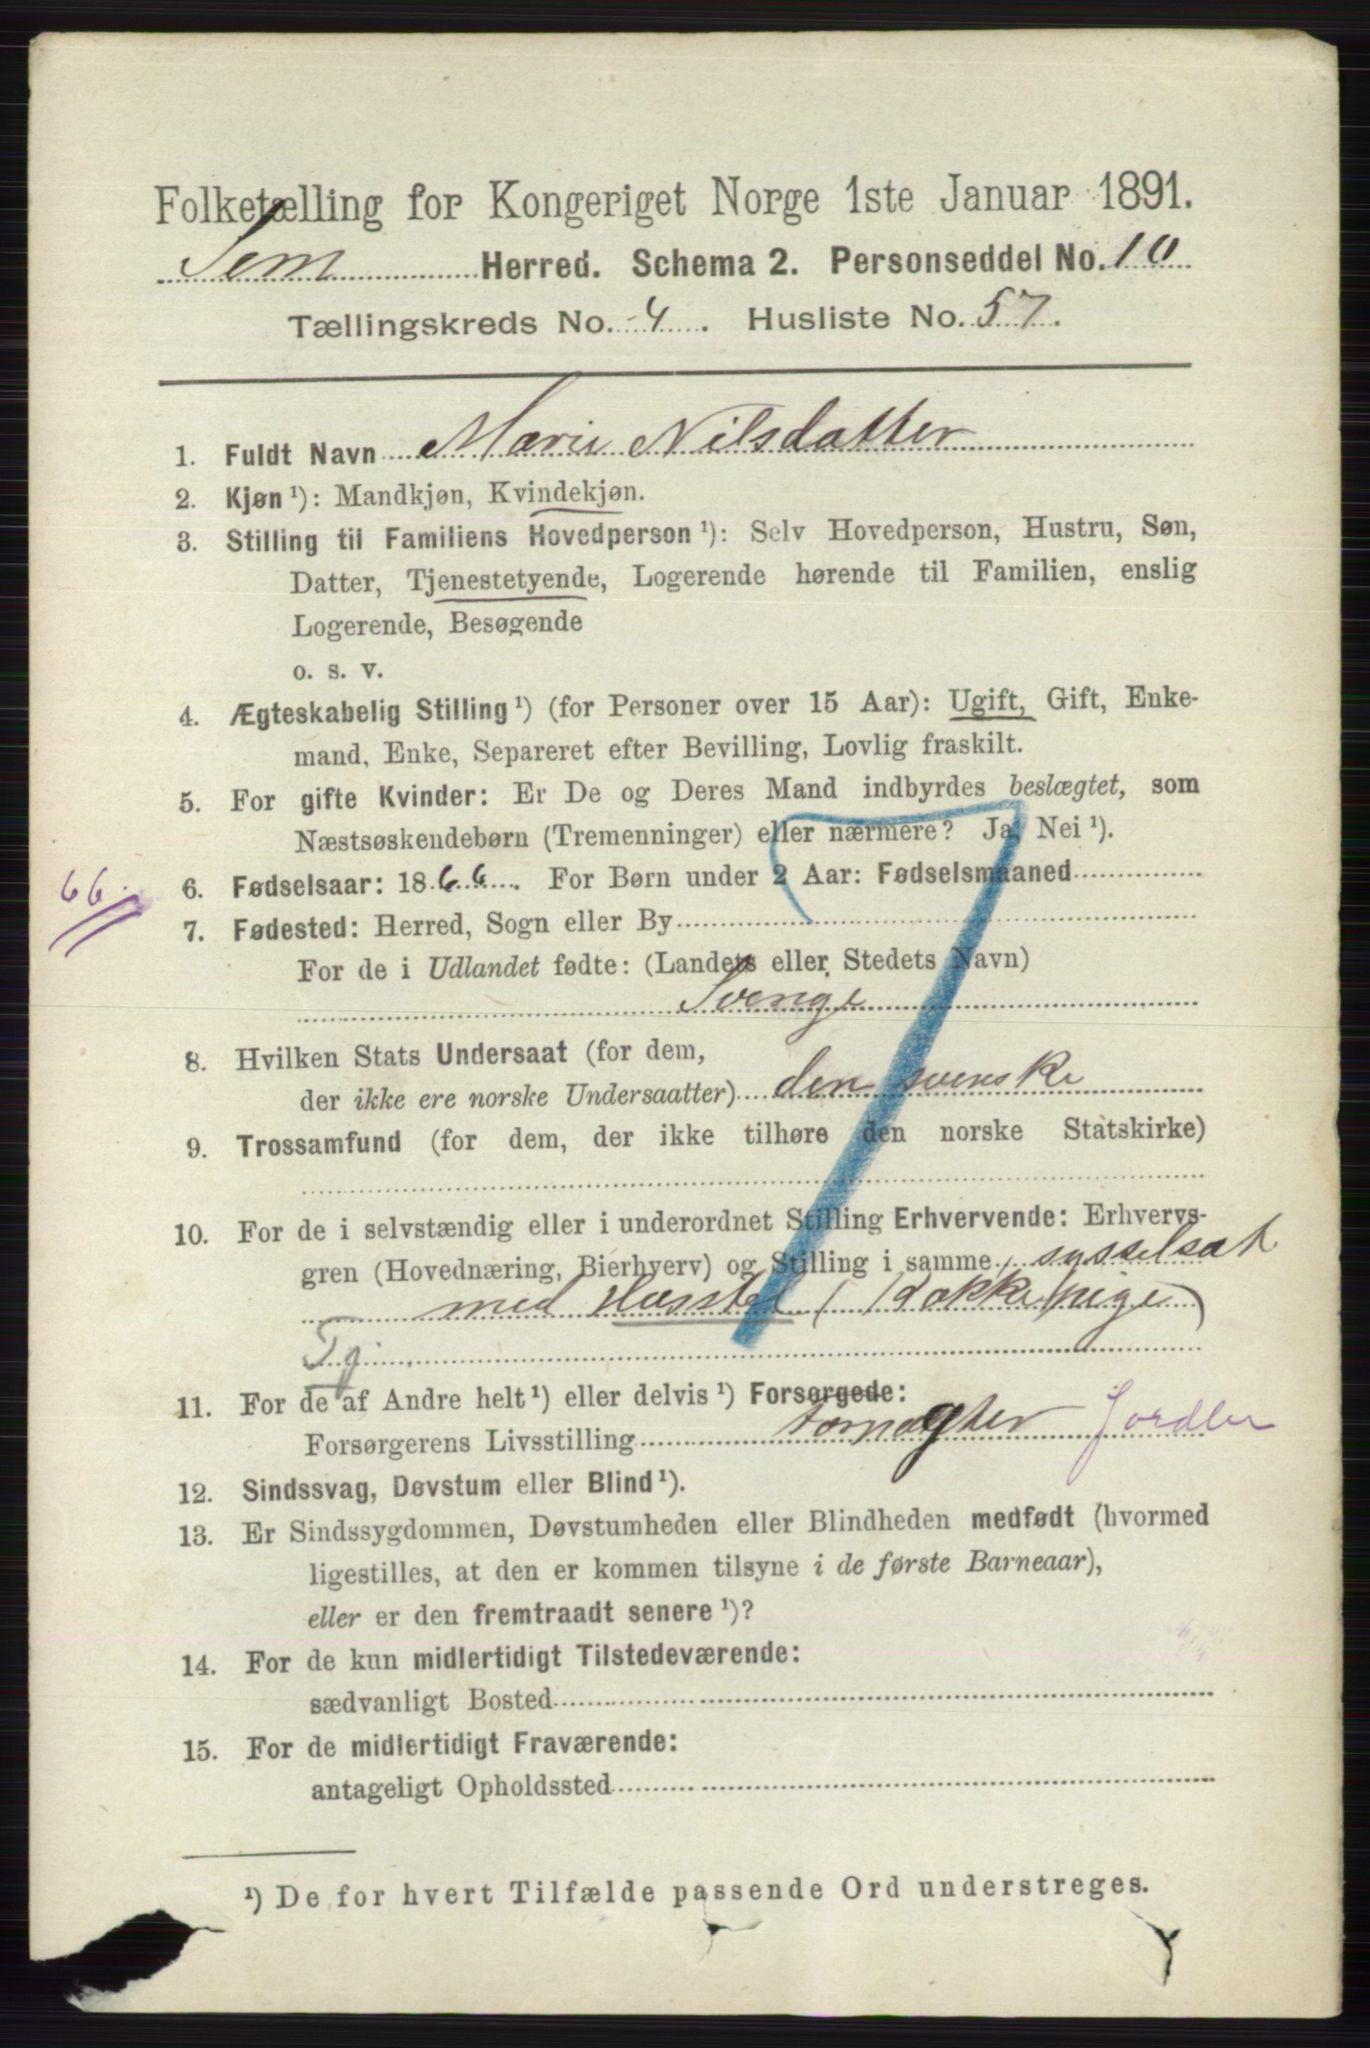 Folketælling for Kongeriget Norge 1ste Januar 1891.
Sem Herred. Schema 2. Personseddel No. 10
Tællingskreds No. 4. Husliste No. 57.
1. Fuldt Navn Marie Nilsdatter
2. Kjøn ¹): Mandkjøn, Kvindekjøn.
3. Stilling til Familiens Hovedperson ¹): Selv Hovedperson, Hustru, Søn,
Datter, Tjenestetyende, Logerende hørende til Familien, enslig
Logerende, Besøgende
o. s. v.
4. Ægteskabelig Stilling ¹) (for Personer over 15 Aar): Ugift, Gift, Enke-
mand, Enke, Separeret efter Bevilling, Lovlig fraskilt.
5. For gifte Kvinder: Er De og Deres Mand indbyrdes beslægtet, som
Næstsøskendebørn (Tremenninger) eller nærmere? Ja, Nei ¹).
66.
6. Fødselsaar: 1866. For Børn under 2 Aar: Fødselsmaaned
7. Fødested: Herred, Sogn eller By
For de i Udlandet fødte: (Landets eller Stedets Navn)
Sverige
8. Hvilken Stats Undersaat (for dem,
der ikke ere norske Undersaatter) den svenske
9. Trossamfund (for dem, der ikke tilhøre den norske Statskirke)
10. For de i selvstændig eller i underordnet Stilling Erhvervende: Erhvervs-
gren (Hovednæring, Bierhverv) og Stilling i samme sysselsat
med Husstel (Kokkepige)
Tj.
11. For de af Andre helt ¹) eller delvis ¹) Forsørgede:
Forsørgerens Livsstilling Jordbr
12. Sindssvag, Døvstum eller Blind ¹).
13. Er Sindssygdommen, Døvstumheden eller Blindheden medfødt (hvormed
ligestilles, at den er kommen tilsyne i de første Barneaar),
eller er den fremtraadt senere ¹)?
14. For de kun midlertidigt Tilstedeværende:
sædvanligt Bosted
15. For de midlertidigt Fraværende:
antageligt Opholdssted
¹) De for hvert Tilfælde passende Ord understreges.